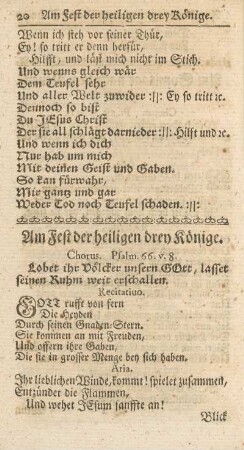 20 Am Fest der heiligen drey Könige.
Wenn ich steh vor seiner Thür,
Ey! so tritt er denn herfür,
Hilfft, und läst mich nicht im Stich.
Und wenns gleich wär
Dem Teufel sehr
Und aller Welt zuwider :||: Ey so tritt ꝛc.
Dennoch so bist
Du JEsus Christ
Der sie all schlägt darnieder :||: Hilft und ꝛc.
Und wenn ich dich
Nur hab um mich
Mit deinen Geist und Gaben.
So kan fürwahr,
Mir gantz und gar
Weder Tod noch Teufel schaden. :||:
Am Fest der heiligen drey Könige.
Chorus. Psalm. 66. v. 8.
Lobet ihr Völcker unsern GOtt, lasset
seinen Ruhm weit erschallen.
Recitativo.
GOTT rufft von fern
Die Heyden
Durch seinen Gnaden-Stern.
Sie kommen an mit Freuden,
Und offern ihre Gaben,
Die sie in grosser Menge bey sich haben.
Aria.
Ihr lieblichen Winde, kommt! spielet zusammen,
Entzünder die Flammen,
Und wehet JEsum sanffte an!
Blick